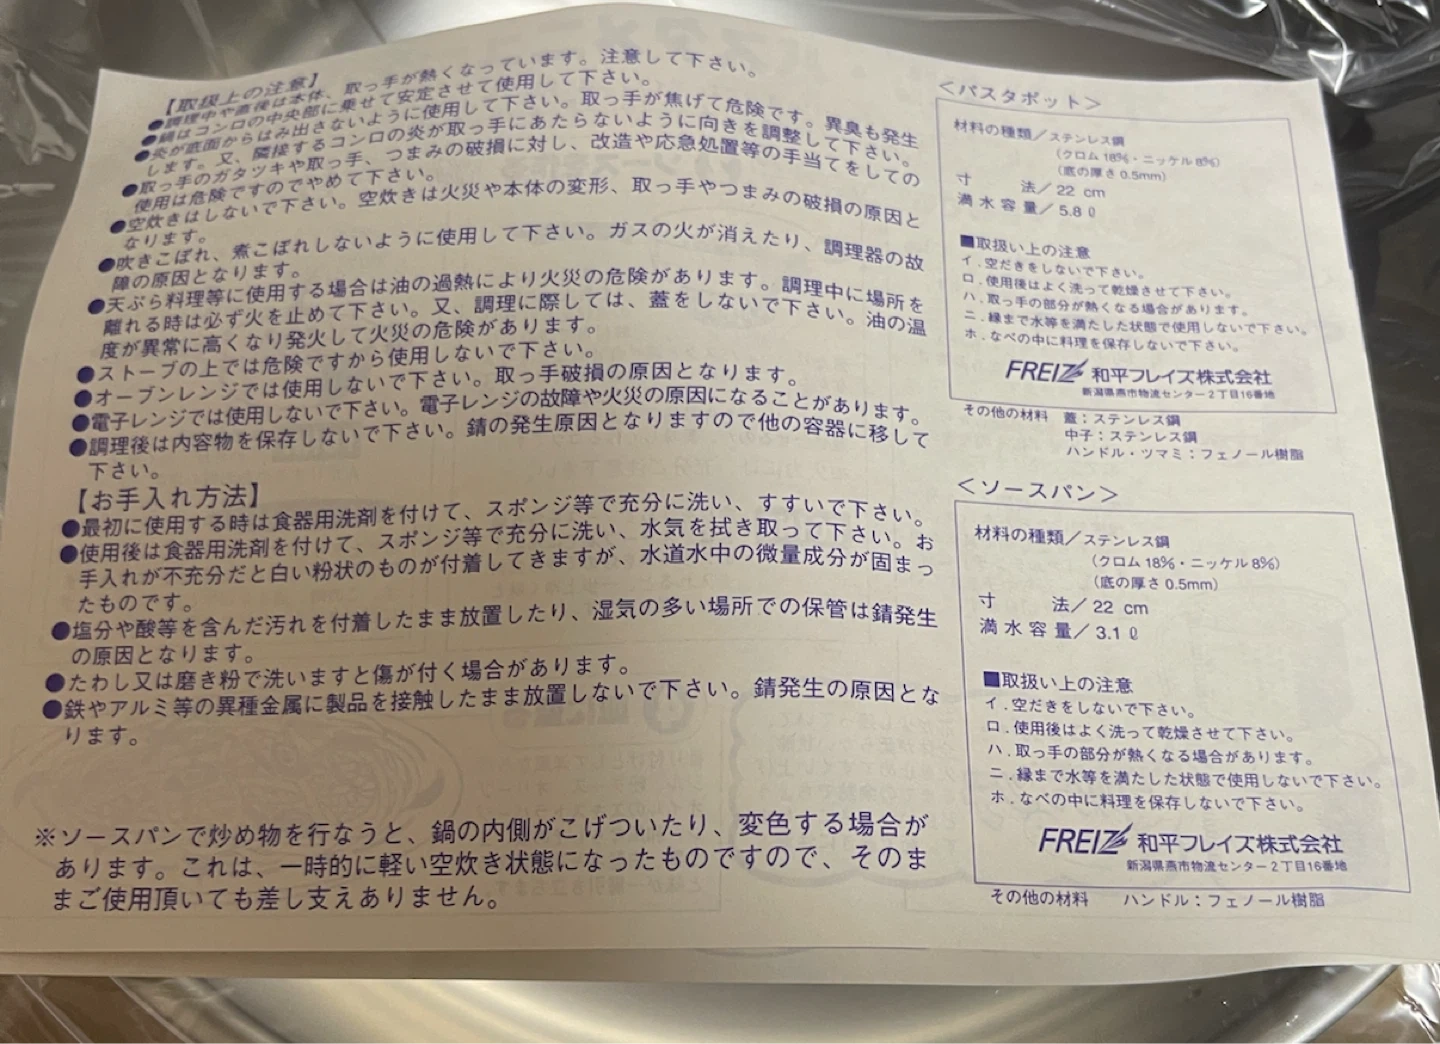 【取扱上の注意】
●調理中や直後は本体、取っ手が熱くなっています。注意して下さい。
●鍋はコンロの中央部に乗せて安定させて使用して下さい。
●炎が底面からはみ出さないように使用して下さい。取っ手が焦げて危険です。異臭も発生
します。又、隣接するコンロの炎が取っ手にあたらないように向きを調整して下さい。
●取っ手のガタツキや取っ手、つまみの破損に対し、改造や応急処置等の手当てをしての
使用は危険ですのでやめて下さい。
●空炊きはしないで下さい。空炊きは火災や本体の変形、取っ手やつまみの破損の原因と
なります。
●吹きこぼれ、煮こぼれしないように使用して下さい。ガスの火が消えたり、調理器の故
障の原因となります。
●天ぷら料理等に使用する場合は油の過熱により火災の危険があります。調理中に場所を
離れる時は必ず火を止めて下さい。又、調理に際しては、蓋をしないで下さい。油の温
度が異常に高くなり発火して火災の危険があります。
●ストーブの上では危険ですから使用しないで下さい。
●オーブンレンジでは使用しないで下さい。取っ手破損の原因となります。
●電子レンジでは使用しないで下さい。電子レンジの故障や火災の原因になることがあります。
●調理後は内容物を保存しないで下さい。錆の発生原因となりますので他の容器に移して
下さい。
【お手入れ方法】
●最初に使用する時は食器用洗剤を付けて、スポンジ等で充分に洗い、すすいで下さい。
●使用後は食器用洗剤を付けて、スポンジ等で充分に洗い、水気を拭き取って下さい。お
手入れが不充分だと白い粉状のものが付着してきますが、水道水中の微量成分が固まっ
たものです。
●塩分や酸等を含んだ汚れを付着したまま放置したり、湿気の多い場所での保管は錆発生
の原因となります。
●たわし又は磨き粉で洗いますと傷が付く場合があります。
●鉄やアルミ等の異種金属に製品を接触したまま放置しないで下さい。錆発生の原因とな
ります。
※ソースパンで炒め物を行なうと、鍋の内側がこげついたり、変色する場合が
あります。これは、一時的に軽い空炊き状態になったものですので、そのま
まご使用頂いても差し支えありません。
＜パスタポット＞
材料の種類／ステンレス鋼
（クロム18％・ニッケル8％）
（底の厚さ0.5mm）
寸　法／22 cm
満水容量／5.8ℓ
■取扱い上の注意
イ．空だきをしないで下さい。
ロ．使用後はよく洗って乾燥させて下さい。
ハ．取っ手の部分が熱くなる場合があります。
ニ．縁まで水等を満たした状態で使用しないで下さい。
ホ．なべの中に料理を保存しないで下さい。
FREIZ 和平フレイズ株式会社
新潟県燕市物流センター2丁目16番地
その他の材料　蓋：ステンレス鋼
中子：ステンレス鋼
ハンドル・ツマミ：フェノール樹脂
＜ソースパン＞
材料の種類／ステンレス鋼
（クロム18％・ニッケル8％）
（底の厚さ0.5mm）
寸　法／22 cm
満水容量／3.1ℓ
■取扱い上の注意
イ．空だきをしないで下さい。
ロ．使用後はよく洗って乾燥させて下さい。
ハ．取っ手の部分が熱くなる場合があります。
ニ．縁まで水等を満たした状態で使用しないで下さい。
ホ．なべの中に料理を保存しないで下さい。
FREIZ 和平フレイズ株式会社
新潟県燕市物流センター2丁目16番地
その他の材料　ハンドル：フェノール樹脂